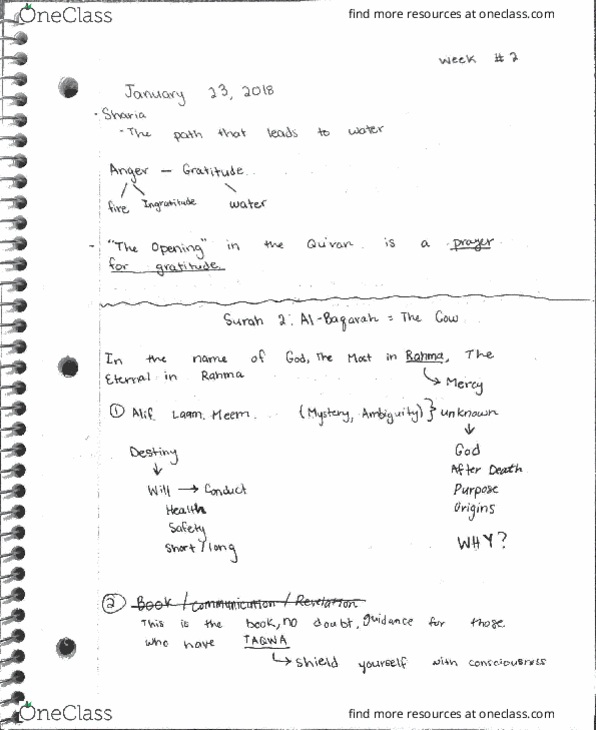 OneClass
find more resources at oneclass.com
Week #2
January 23, 2018
· Sharia
· The path that leads to water
Anger — Gratitude
fire Ingratitude water
- "The Opening" in the Qu'ran is a prayer
for gratitude.
Surah 2: Al-Baqarah = The Cow
In the name of God, The Most in Rahma, The
Eternal in Rahma
↳ Mercy
① Alif Laam Meem (Mystery, Ambiguity) } unknown
Destiny
↓
Will → Conduct
Health
Safety
Short / long
↓
God
After Death
Purpose
Origins
WHY?
② Book / Communication / Revelation
This is the book, no doubt, guidance for those
who have TAQWA
↳ shield yourself with consciousness
OneClass
find more resources at oneclass.com